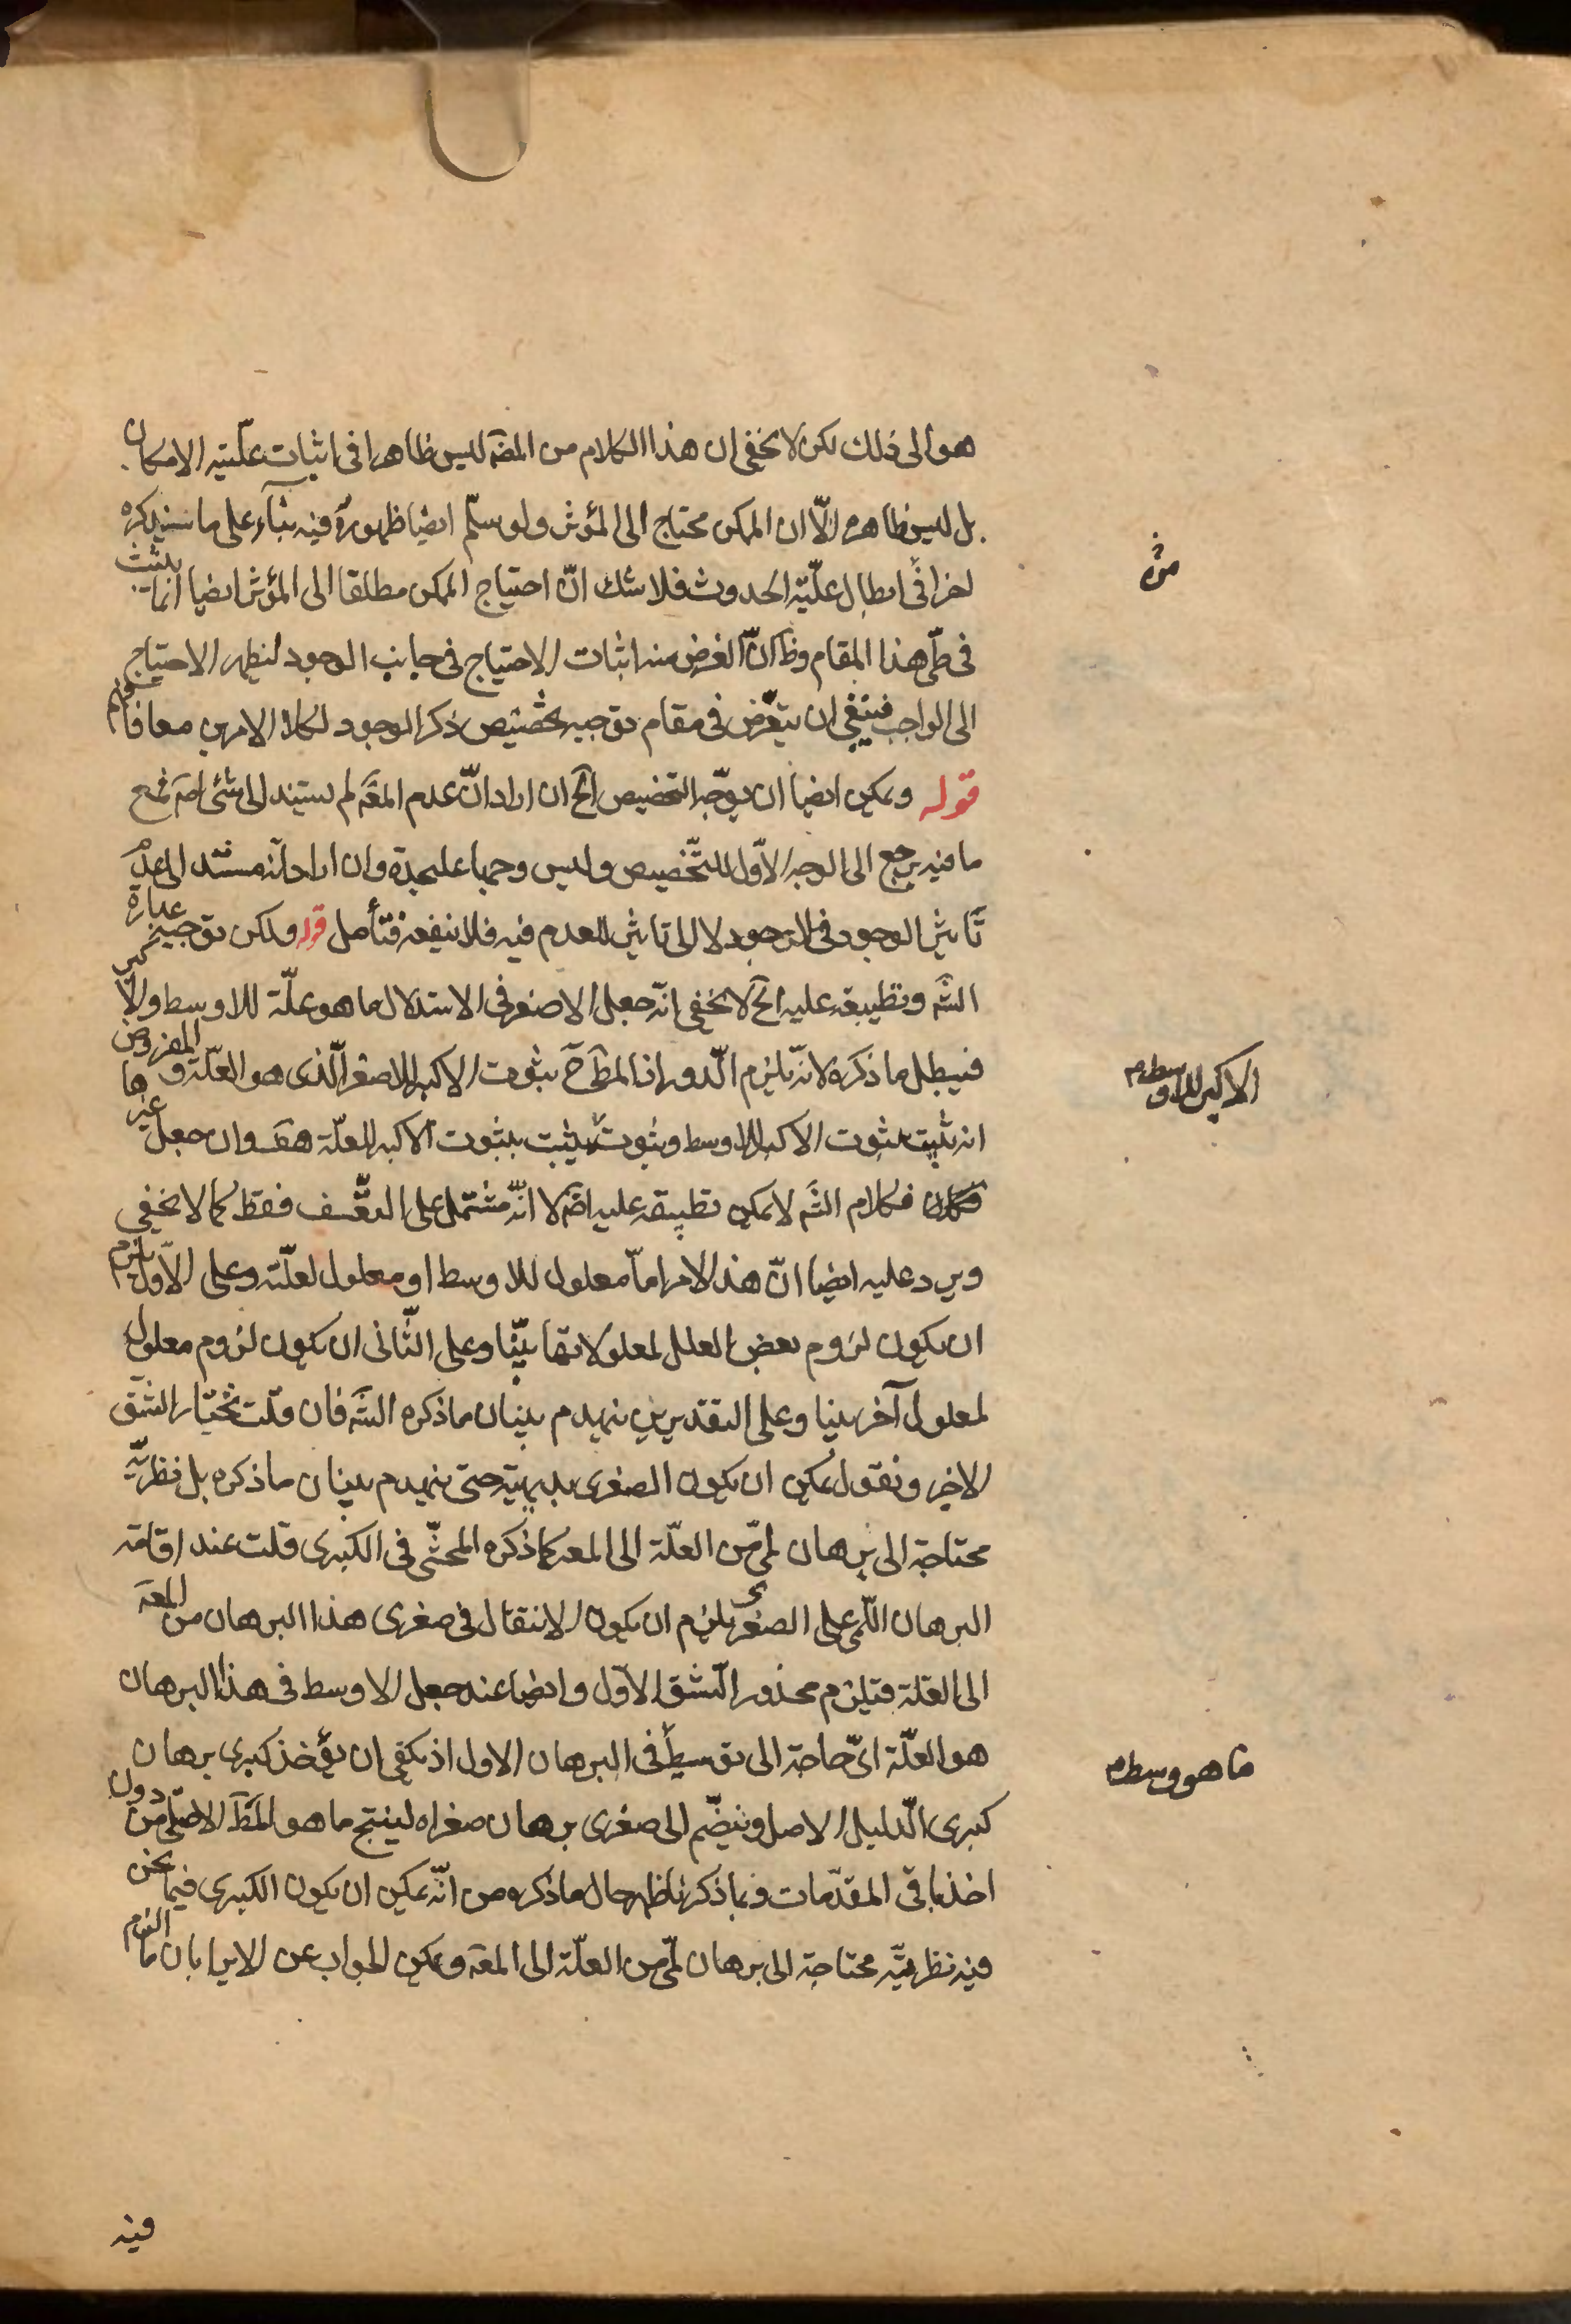 هو الى ذلك لكن لا يخفى ان هذا الكلام من المصَ ليس ظاهرا فى اثبات علّتيه الامكان
بل ليس ظاهره الّا ان الممكن محتاج الى المؤثر ولو سلّم ايضا ظهوره فيه بناء على ما سيذكره
اخرا فى ابطال علّية الحدوث فلا شك انّ احتياج الممكن مطلقا الى المؤثر ايضا انما يثبت
فى طىّ هذا المقام وظ انّ الغرض منه اثبات الاحتياج فى جانب الوجود ليظهر الاحتياج
الى الواجب فينبغى ان يتعرّض فى مقام توجيه تخصيص ذكر الوجود لكلا الامرين معا فافهم
قوله ويمكن ايضا ان يوجّه التخصيص الخ ان اراد انّ عدم المعَ لم يستند الى شئ اصَ فمع
ما فيه يرجع الى الوجه الاوّل للتّخصيص وليس وجها عليحدة وان اراد انّه مستند الى عدم
تاثير الوجود فى الوجود لا الى تاثير العدم فيه فلا ينفعه فتأمل قوله ولكن توجيه عبارة
الشَ وتطبيقه عليه الخ لا يخفى انّه جعل الاصغر فى الاستدلال ما هو علّة للاوسط والاكبر
فيبطل ما ذكره لانّه يلزم الدّور اذ المطَ ح ثبوت الاكبر للاصغر الّذى هو العلّة والمفروض
انه يثبت بثبوت الاكبر للاوسط وثبوته يثبت بثبوت الاكبر للعلّة هفَ وان جعل غيرها
فكلام الشَ لا يمكن تطبيقه عليه اصَ لا انّه مشتمل على التعسّف فقط كما لا يخفى
ويرد عليه ايضا انّ هذا الامر امّا معلول للاوسط او معلول لعلّته وعلى الاوّل يلزم
ان يكون لزوم بعض العلل لمعلولاتها بيّنا وعلى الثّانى ان يكون لزوم معلول
لمعلول آخر بينا وعلى التقديرين ينهدم بنيان ما ذكره الشَ فان قلت نختار الشق
الاخير ونقول يمكن ان يكون الصغرى بديهيّة حتى ينهدم بنيان ما ذكره بل نظريّة
محتاجة الى برهان لمّى من العلّة الى المعَ كما ذكره المحشّى فى الكبرى قلت عند اقامة
البرهان اللّمى على الصغرى يلزم ان يكون الانتقال فى صغرى هذا البرهان من المعَ
الى العلّة فيلزم محذور الشق الاوّل وايضا عند جعل الاوسط فى هذا البرهان
هو العلّة اىّ حاجة الى توسيط فى البرهان الاول اذ يكفى ان يؤخذ كبرى برهان
كبرى الدّليل الاصل وينضّم الى صغرى برهان صغراه لينتج ما هو المطَ الاصلى من دون
اخذ باقى المقدّمات وبما ذكرنا ظهر حال ما ذكره من انّه يمكن ان يكون الكبرى فيما نحن
فيه نظريّة محتاجة الى برهان لمّى من العلّة الى المعَ ويمكن الجواب عن الايراد بان ما الزم
الاكبر للاوسط م
ما هو وسط م
فيه